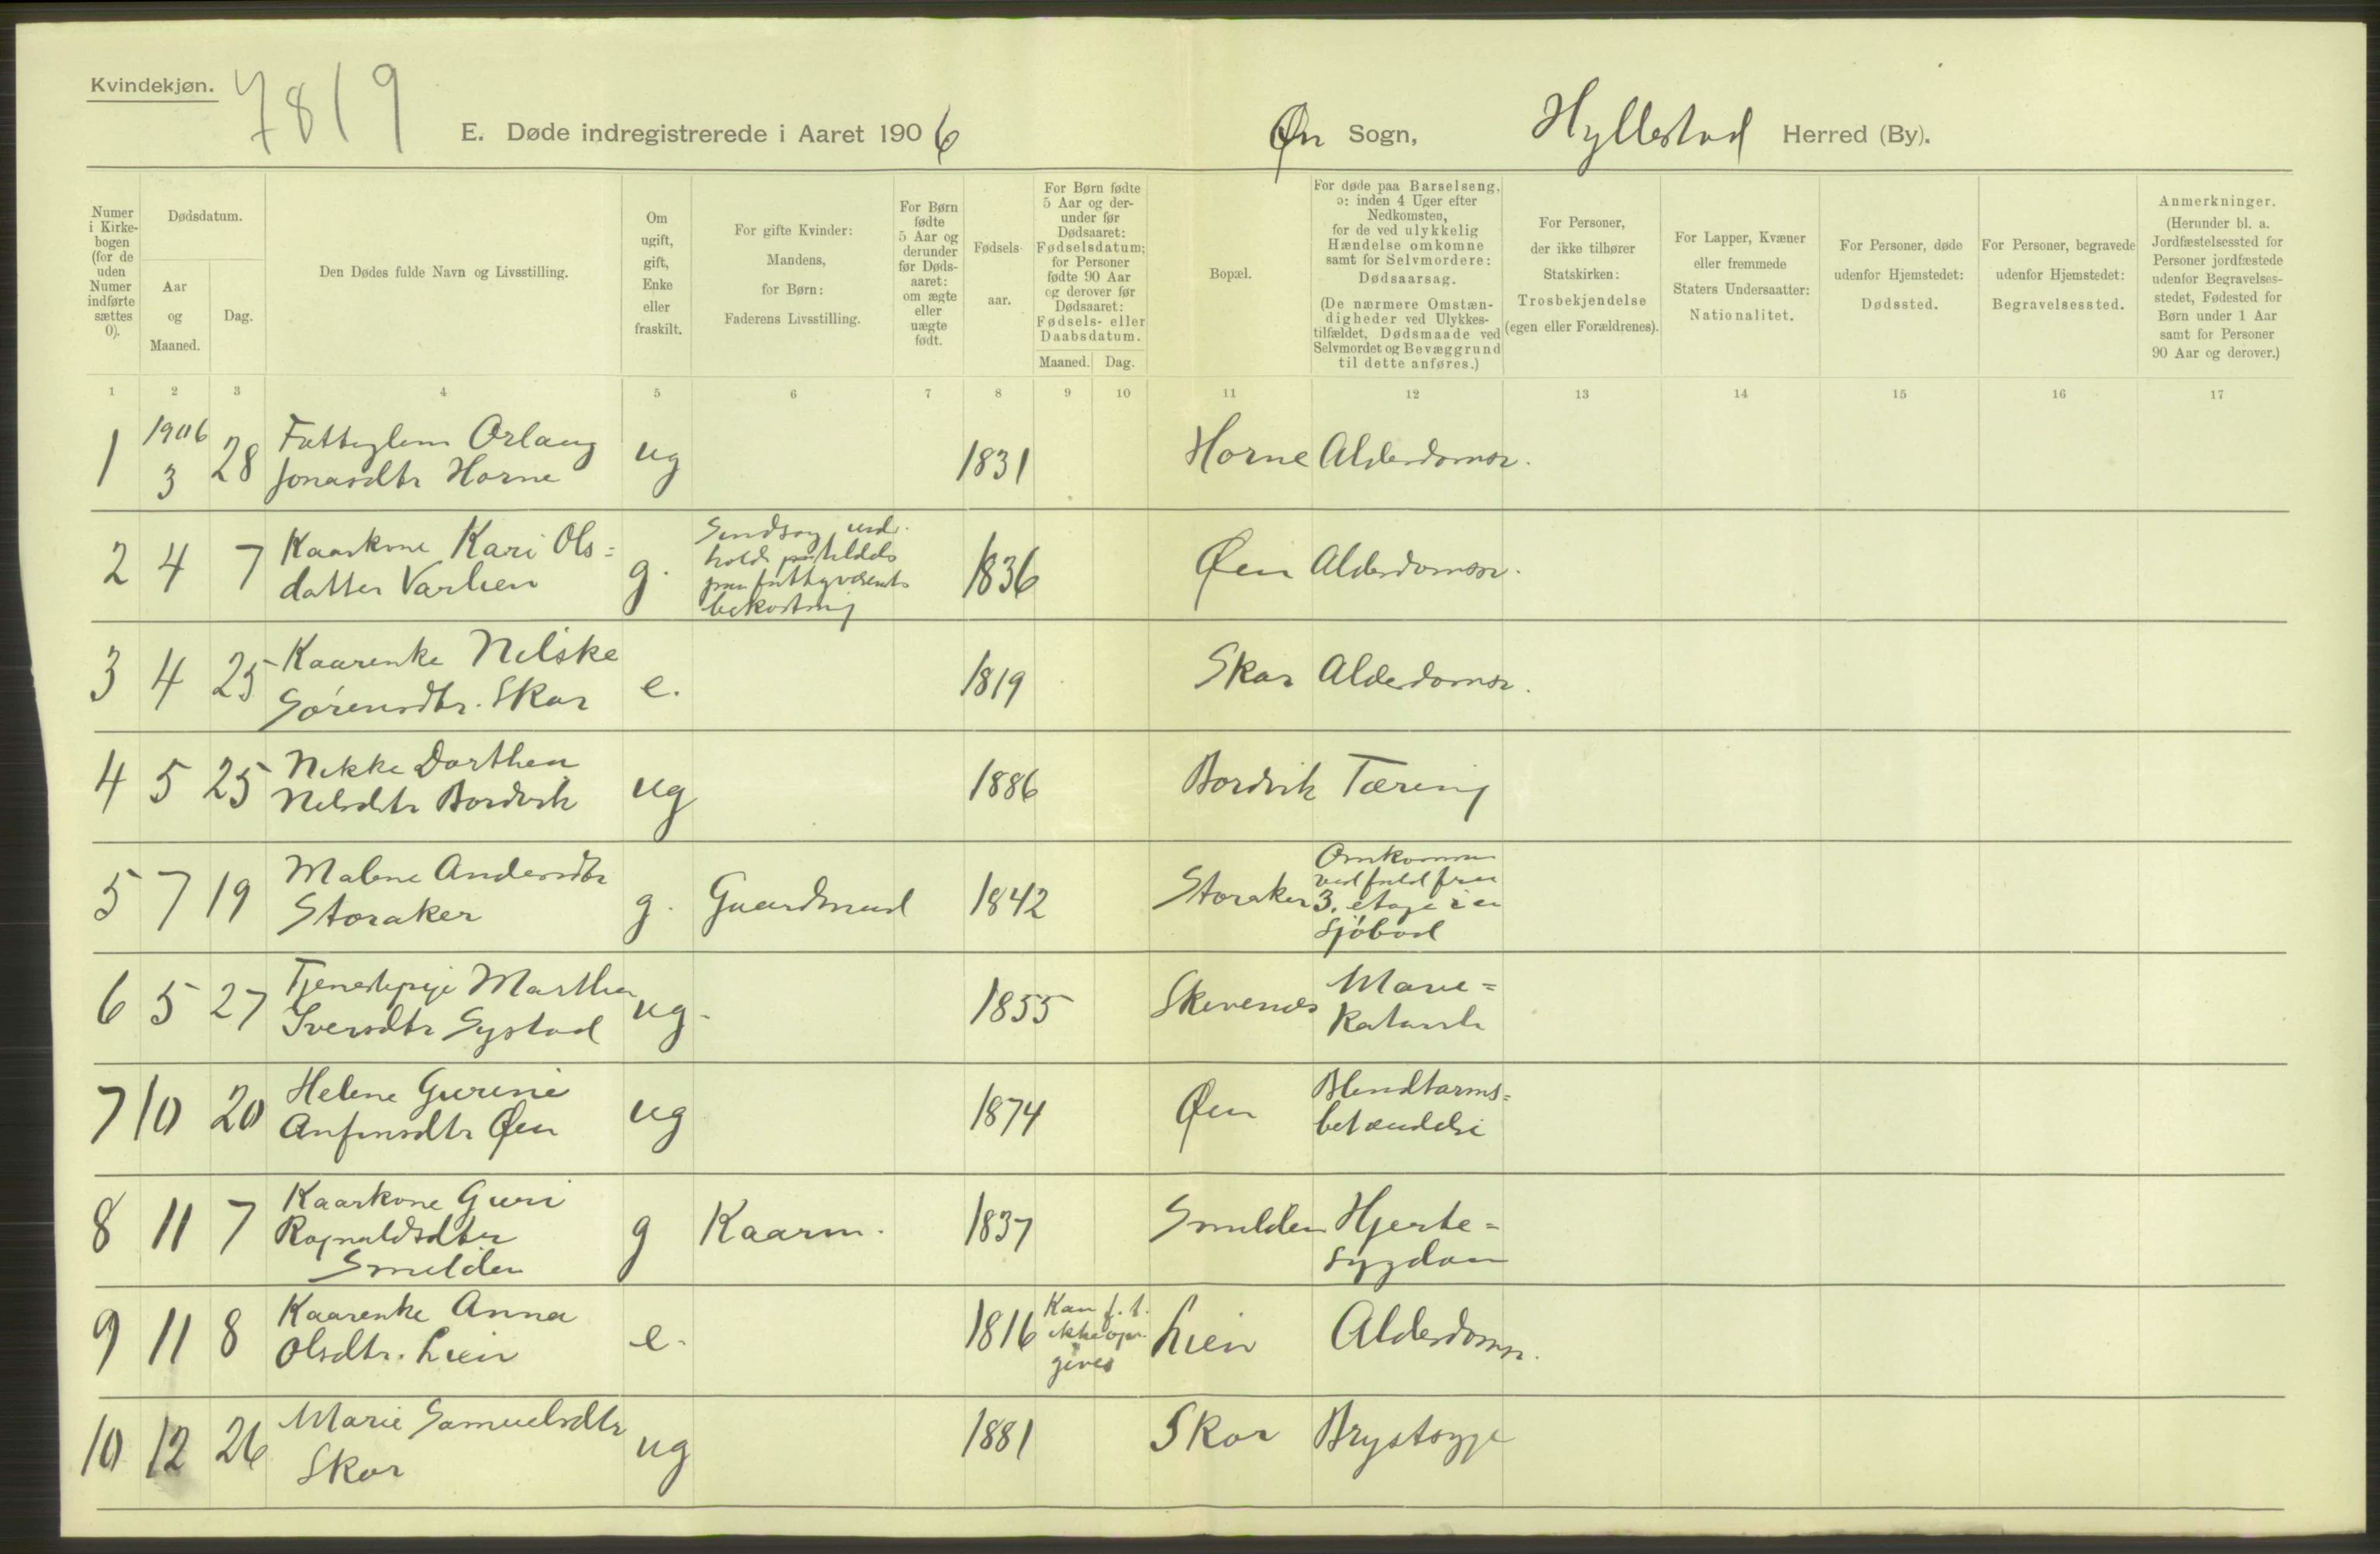 Kvindekjøn.
7819
E. Døde indregistrerede i Aaret 1906
Øn Sogn, Hyllestad Herred (By).
Numer i Kirkebogen (for de uden Numer indførte sættes 0).
Dødsdatum.
Aar og Maaned.
Dag.
Den Dødes fulde Navn og Livsstilling.
Om ugift, gift, Enke eller fraskilt.
For gifte Kvinder: Mandens, for Børn: Faderens Livsstilling.
For Børn fødte 5 Aar og derunder før Dødsaaret: om ægte eller uægte født.
Fødselsaar.
For Børn fødte 5 Aar og derunder før Dødsaaret: Fødselsdatum; for Personer fødte 90 Aar og derover før Dødsaaret: Fødsels- eller Daabsdatum.
Maaned. Dag.
Bopæl.
For døde paa Barselseng, ɔ: inden 4 Uger efter Nedkomsten, for de ved ulykkelig Hændelse omkomne samt for Selvmordere: Dødsaarsag.
(De nærmere Omstændigheder ved Ulykkestilfældet, Dødsmaade ved Selvmordet og Bevæggrund til dette anføres.)
For Personer, der ikke tilhører Statskirken: Trosbekjendelse (egen eller Forældrenes).
For Lapper, Kvæner eller fremmede Staters Undersaatter: Nationalitet.
For Personer, døde udenfor Hjemstedet: Dødssted.
For Personer, begravede udenfor Hjemstedet: Begravelsessted.
Anmerkninger.
(Herunder bl. a. Jordfæstelsessted for Personer jordfæstede udenfor Begravelsesstedet, Fødested for Børn under 1 Aar samt for Personer 90 Aar og derover.)
1 2 3 4 5 6 7 8 9 10 11 12 13 14 15 16 17
1 1906 3 28 Fattiglem Orlaug Jonasdtr Horne ug 1831 Horne Alderdomssv.
2 4 7 Kaarkone Kari Ols=datter Varlien g. Sindssyg, underholdt paa fattigvæsenets bekostning 1836 Øen Alderdomssv.
3 4 25 Kaarenke Nilske Sørensdtr. Skor e. 1819 Skor Alderdomssv.
4 5 25 Nikke Dorthea Nilsdtr Bordvik ug 1886 Bordvik Tæring
5 7 19 Malene Andersdtr Storaker g. Gaardmand 1842 Storaker Omkommen ved fald fra 3. etage i en sjøbod
6 5 27 Tjenestepige Martha Iversdtr Systad ug. 1855 Skivenes Mave=katarrh
7 10 20 Helene Gurine Anfinsdtr Øen ug 1874 Øen Blindtarms=betændelse
8 11 7 Kaarkone Guri Ragnaldsdtr Smilden g Kaarm. 1837 Smilden Hjerte=sygdom
9 11 8 Kaarenke Anna Olsdtr. Lien e. 1816 Kan f. t. ikke opgives Lien Alderdomssv.
10 12 26 Marie Samuelsdtr Skor ug 1881 Skor Brystsyge